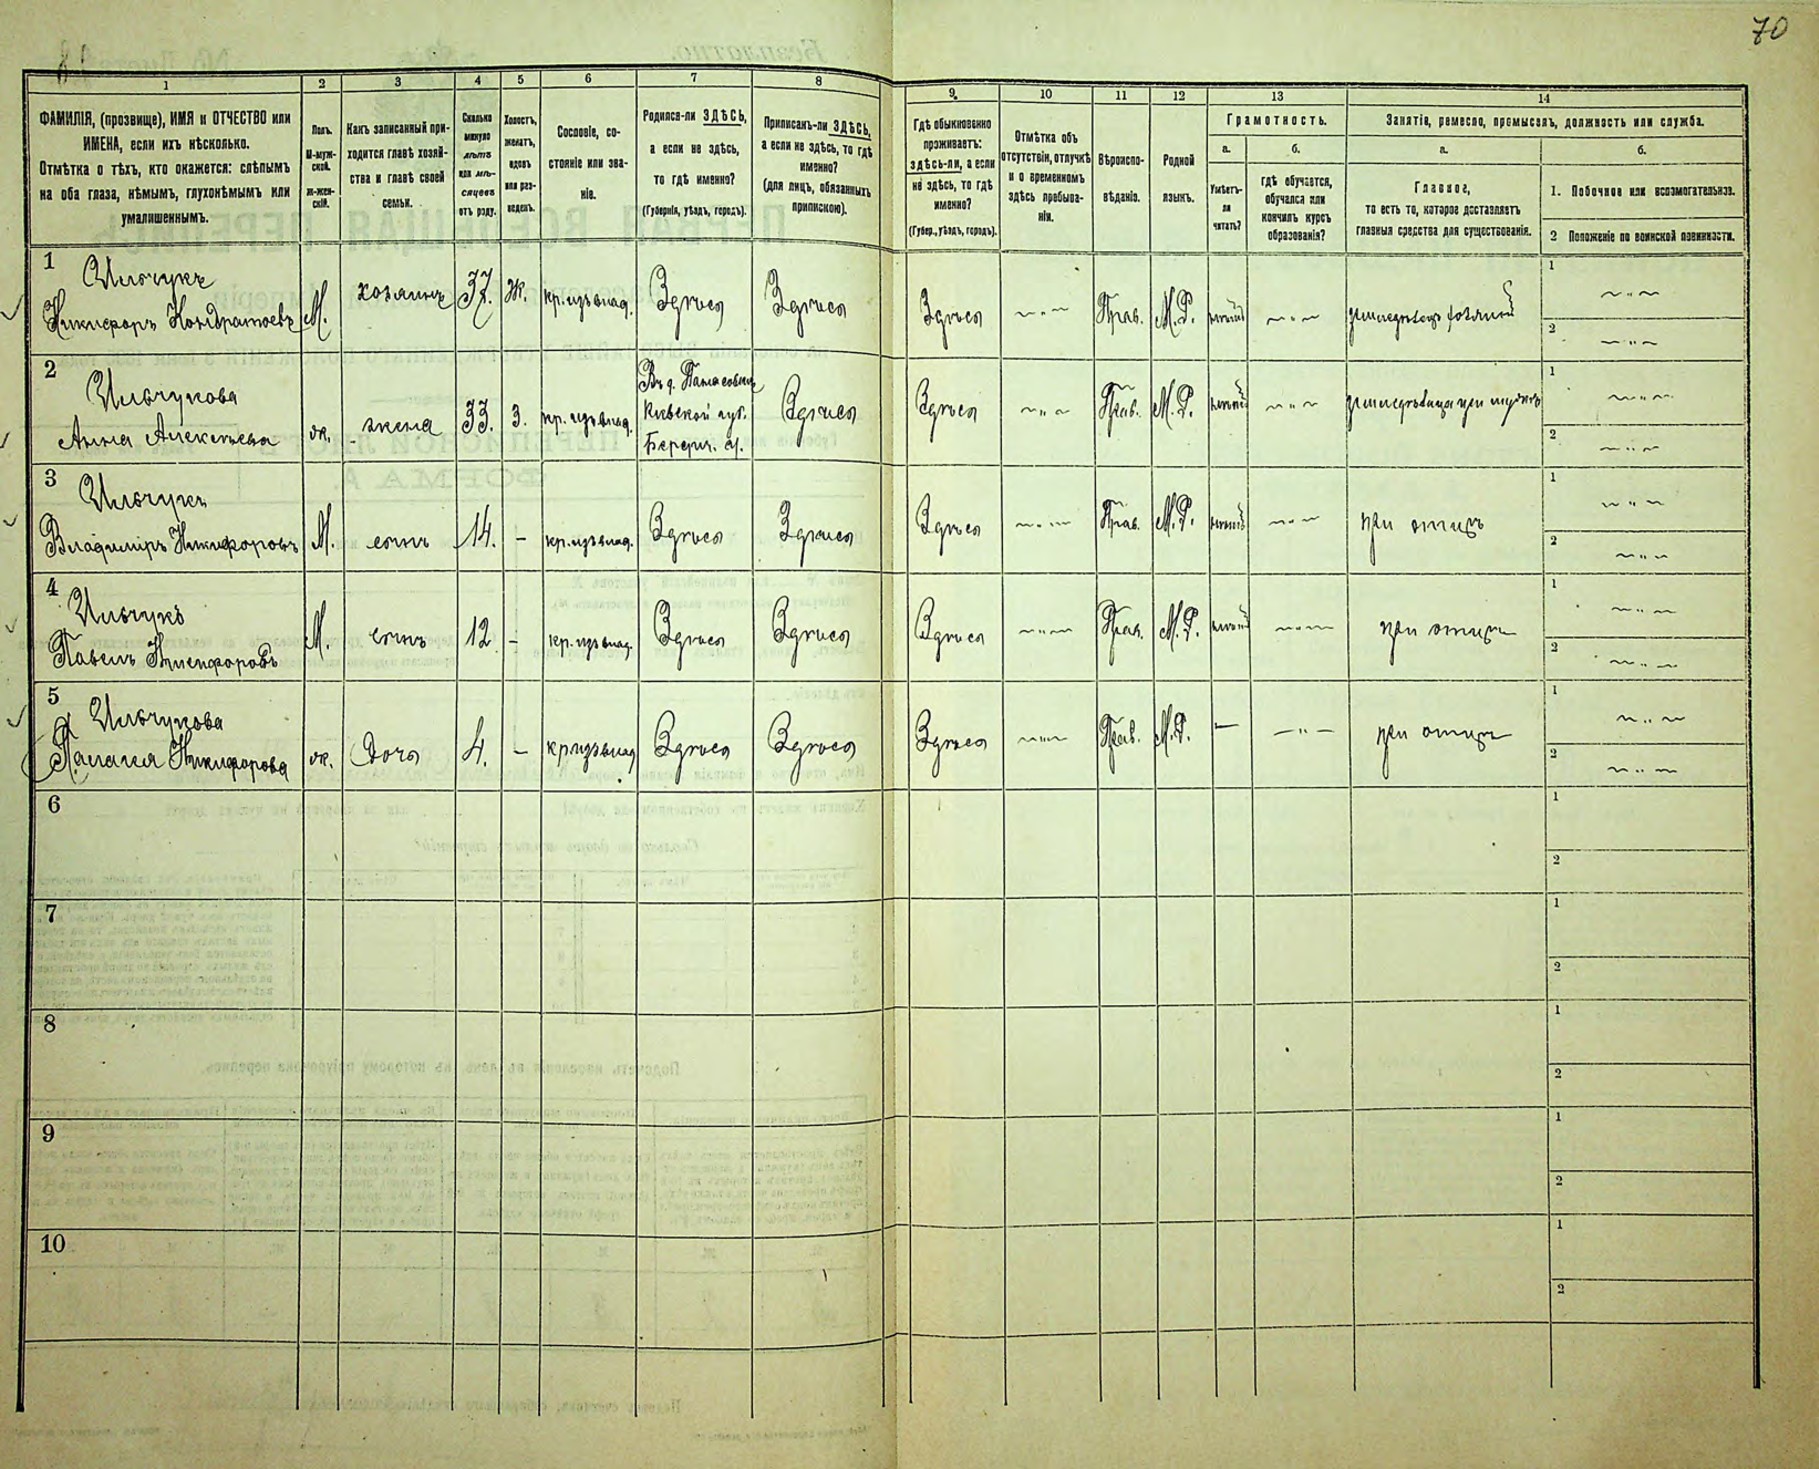 70
1 2 3 4 5 6 7 8 9. 10 11 12 13 14
ФАМИЛІЯ, (прозвище), ИМЯ и ОТЧЕСТВО или
ИМЕНА, если ихъ нѣсколько.
Отмѣтка о тѣхъ, кто окажется: слѣпымъ
на оба глаза, нѣмымъ, глухонѣмымъ или
умалишеннымъ.
Полъ.
М-муж-
ской.
ж-жен-
скій.
Какъ записанный при-
ходится главѣ хозяй-
ства и главѣ своей
семьи.
Сколько
минуло
лѣтъ
или мѣ-
сяцевъ
отъ роду.
Холостъ,
женатъ,
вдовъ
или раз-
веденъ.
Сословіе, со-
стояніе или зва-
ніе.
Родился-ли ЗДѢСЬ,
а если не здѣсь,
то гдѣ именно?
(Губернія, уѣздъ, городъ).
Приписанъ-ли ЗДѢСЬ,
а если не здѣсь, то гдѣ
именно?
(для лицъ, обязанныхъ
припискою).
Гдѣ обыкновенно
проживаетъ:
здѣсь-ли, а если
не здѣсь, то гдѣ
именно?
(Губер., уѣздъ, городъ).
Отмѣтка объ
отсутствіи, отлучкѣ
и о временномъ
здѣсь пребыва-
ніи.
Вѣроиспо-
вѣданіе.
Родной
языкъ.
Грамотность.
а.
Умѣетъ-
ли
читать?
б.
гдѣ обучается,
обучался или
кончилъ курсъ
образованія?
Занятіе, ремесло, промыселъ, должность или служба.
а.
Главное,
то есть то, которое доставляетъ
главныя средства для существованія.
б.
1. Побочное или вспомогательное.
2 Положеніе по воинской повинности.
1 Ильчукъ
Никифоръ Кондратьевъ М. хозяинъ 37. Ж. кр. изъ влад. Здѣсь Здѣсь Здѣсь — " — Прав. М. Р. — " —
1 — " —
2 — " —
2 Ильчукова
Анна Алексѣева ж. жена 33. З. кр. изъ влад.
Въ д.
Кіевской губ.
Бердич. у.
Здѣсь Здѣсь — " — Прав. М. Р. — " —
1 — " —
2 — " —
3 Ильчукъ
Владиміръ Никифоровъ М. сынъ 14. - кр. изъ влад. Здѣсь Здѣсь Здѣсь — " — Прав. М. Р. — " — при отцѣ
1 — " —
2 — " —
4 Ильчукъ
Павелъ Никифоровъ М. сынъ 12 - кр. изъ влад. Здѣсь Здѣсь Здѣсь — " — Прав. М. Р. — " — при отцѣ
1 — " —
2 — " —
5 Ильчукова
Палагея Никифорова ж. дочь 4. - кр изъ влад Здѣсь Здѣсь Здѣсь — " — Прав. М. Р. — — " — при отцѣ
1 — " —
2 — " —
6 1
2
7 1
2
8 1
2
9 1
2
10 1
2